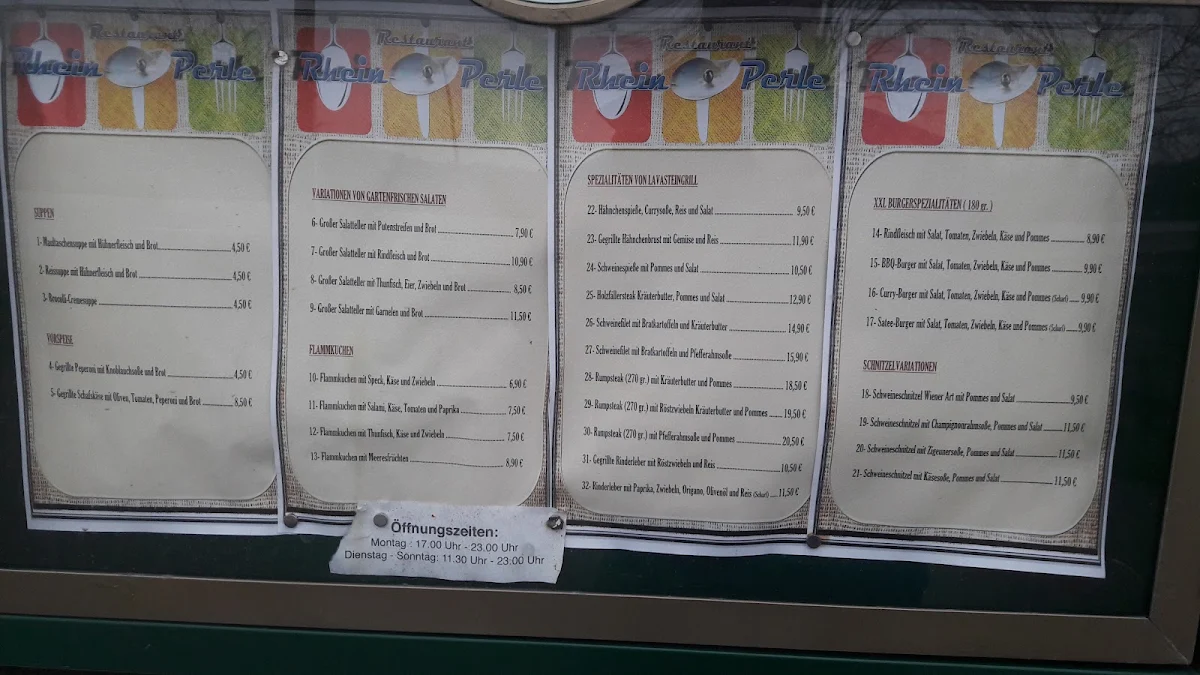 Restaurant
Rhein Perle
SUPPEN
1- Maultaschensuppe mit Hühnerfleisch und Brot 4,50 €
2- Reissuppe mit Hühnerfleisch und Brot 4,50 €
3- Brocolli-Cremesuppe 4,50 €
VORSPEISE
4- Gegrillte Peperoni mit Knoblauchsoße und Brot 4,50 €
5- Gegrillte Schafskäse mit Oliven, Tomaten, Peperoni und Brot 8,50 €
Restaurant
Rhein Perle
VARIATIONEN VON GARTENFRISCHEN SALATEN
6- Großer Salatteller mit Putenstreifen und Brot 7,90 €
7- Großer Salatteller mit Rindfleisch und Brot 10,90 €
8- Großer Salatteller mit Thunfisch, Eier, Zwiebeln und Brot 8,50 €
9- Großer Salatteller mit Garnelen und Brot 11,50 €
FLAMMKUCHEN
10- Flammkuchen mit Speck, Käse und Zwiebeln 6,90 €
11- Flammkuchen mit Salami, Käse, Tomaten und Paprika 7,50 €
12- Flammkuchen mit Thunfisch, Käse und Zwiebeln 7,50 €
13- Flammkuchen mit Meeresfrüchten 8,90 €
Restaurant
Rhein Perle
SPEZIALITÄTEN VON LAVASTEINGRILL
22- Hähnchenspieße, Currysoße, Reis und Salat 9,50 €
23- Gegrillte Hähnchenbrust mit Gemüse und Reis 11,90 €
24- Schweinespieße mit Pommes und Salat 10,50 €
25- Holzfällersteak Kräuterbutter, Pommes und Salat 12,90 €
26- Schweinefilet mit Bratkartoffeln und Kräuterbutter 14,90 €
27- Schweinefilet mit Bratkartoffeln und Pfefferahmsoße 15,90 €
28- Rumpsteak (270 gr.) mit Kräuterbutter und Pommes 18,50 €
29- Rumpsteak (270 gr.) mit Röstzwiebeln Kräuterbutter und Pommes 19,50 €
30- Rumpsteak (270 gr.) mit Pfefferahmsoße und Pommes 20,50 €
31- Gegrillte Rinderleber mit Röstzwiebeln und Reis 10,50 €
32- Rinderleber mit Paprika, Zwiebeln, Origano, Olivenöl und Reis (Scharf) 11,50 €
Restaurant
Rhein Perle
XXL BURGERSPEZIALITÄTEN ( 180 gr. )
14- Rindfleisch mit Salat, Tomaten, Zwiebeln, Käse und Pommes 8,90 €
15- BBQ-Burger mit Salat, Tomaten, Zwiebeln, Käse und Pommes 9,90 €
16- Curry-Burger mit Salat, Tomaten, Zwiebeln, Käse und Pommes (Scharf) 9,90 €
17- Satee-Burger mit Salat, Tomaten, Zwiebeln, Käse und Pommes (Scharf) 9,90 €
SCHNITZELVARIATIONEN
18- Schweineschnitzel Wiener Art mit Pommes und Salat 9,50 €
19- Schweineschnitzel mit Champignonrahmsoße, Pommes und Salat 11,50 €
20- Schweineschnitzel mit Zigeunersoße, Pommes und Salat 11,50 €
21- Schweineschnitzel mit Käsesoße, Pommes und Salat 11,50 €
Öffnungszeiten:
Montag : 17.00 Uhr - 23.00 Uhr
Dienstag - Sonntag: 11.30 Uhr - 23.00 Uhr